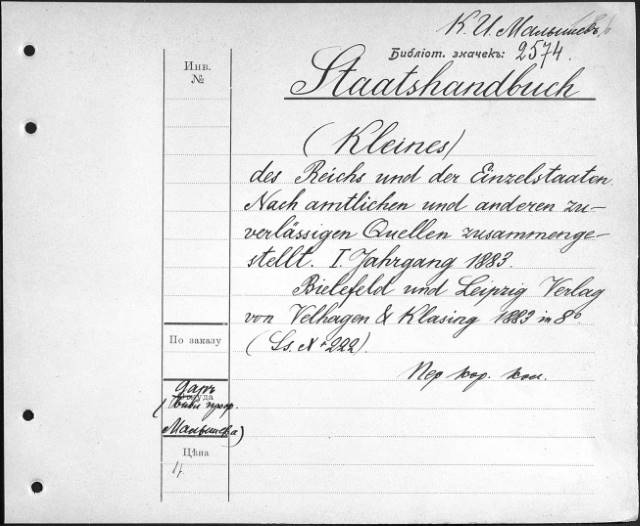 К. И. Малышевъ
Библіот. значекъ: 2574.
Инв.
№
Staatshandbuch
(Kleines)
des Reichs und der Einzelstaaten.
Nach amtlichen und anderen zu-
verlässigen Quellen zusammenge-
stellt. I. Jahrgang 1883.
Bielefeld und Leipzig Verlag
von Velhagen & Klasing 1883 in 8º
(Ss. X + 222).
По заказу
Пер кор. кол.
Даръ
(библ проф.
Малышева)
Цѣна